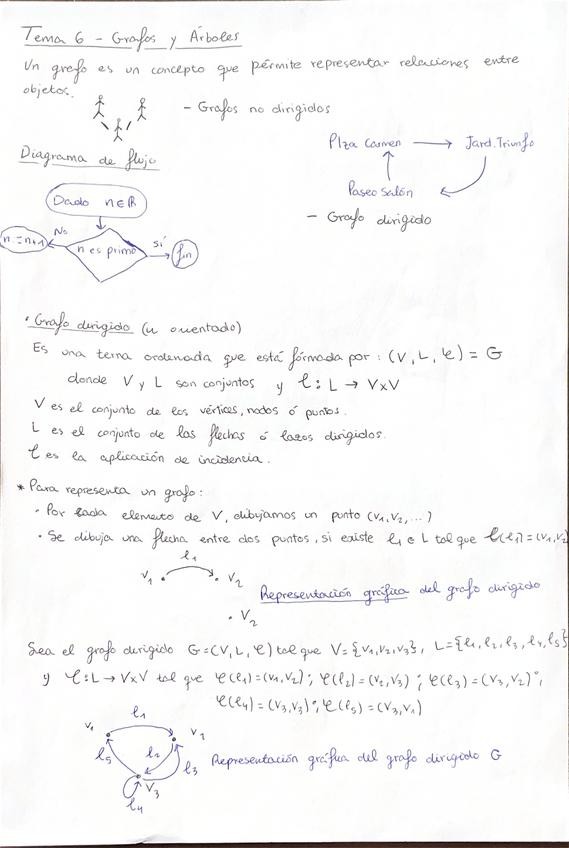 Tema 6 - Grafos y Árboles
Un grafo es un concepto que permite representar relaciones entre
objetos.
- Grafos no dirigidos
Plza Carmen
Jard. Triunfo
Paseo Salón
- Grafo dirigido
Diagrama de flujo
Dado n∈ℝ
No
n:=n+1
n es primo
Sí
fin
· Grafo dirigido (u orientado)
Es una terna ordenada que está fórmada por: (V, L, φ) = G
donde V y L son conjuntos y φ: L → V×V
V es el conjunto de los vértices, nodos ó puntos.
L es el conjunto de las flechas ó lazos dirigidos.
φ es la aplicación de incidencia.
* Para representa un grafo:
· Por cada elemento de V, dibujamos un punto (v₁, v₂, ...)
· Se dibuja una flecha entre dos puntos, si existe l₁ ∈ L tal que φ(l₁) = (v₁, v₂
l₁
v₁
v₂
· v₂
Representación gráfica del grafo dirigido
Sea el grafo dirigido G = (V, L, φ) tal que V = {v₁, v₂, v₃}, L = {l₁, l₂, l₃, l₄, l₅}
y φ: L → V×V tal que φ(l₁) = (v₁, v₂); φ(l₂) = (v₂, v₃); φ(l₃) = (v₃, v₂);
φ(l₄) = (v₃, v₃); φ(l₅) = (v₃, v₁)
l₁
v₁
v₂
l₅
l₂
l₃
v₃
l₄
Representación gráfica del grafo dirigido G